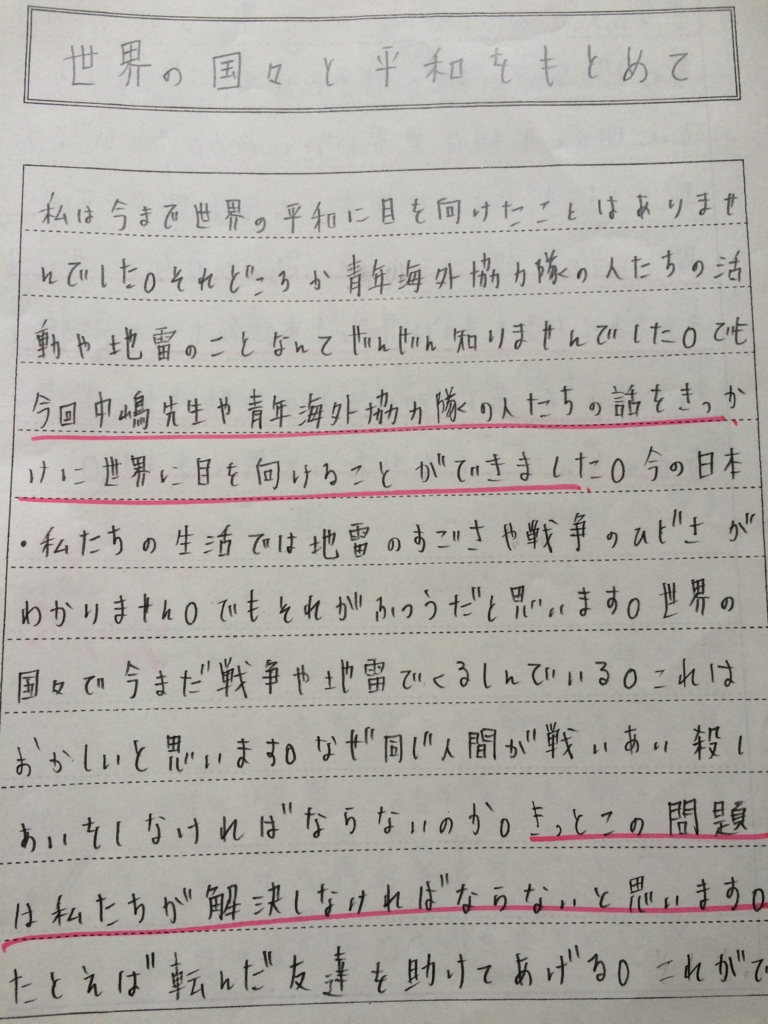 世界の国々と平和をもとめて
私は今まで世界の平和に目を向けたことはありませ
んでした。それどころか青年海外協力隊の人たちの活
動や地雷のことなんてぜんぜん知りませんでした。でも
今回中嶋先生や青年海外協力隊の人たちの話をきっか
けに世界に目を向けることができました。今の日本
・私たちの生活では地雷のすごさや戦争のひどさが
わかりません。でもそれがふつうだと思います。世界の
国々で今まだ戦争や地雷でくるしんでいる。これは
おかしいと思います。なぜ同じ人間が戦いあい殺し
あいをしなければならないのか。きっとこの問題
は私たちが解決しなければならないと思います。
たとえば転んだ友達を助けてあげる。これがで